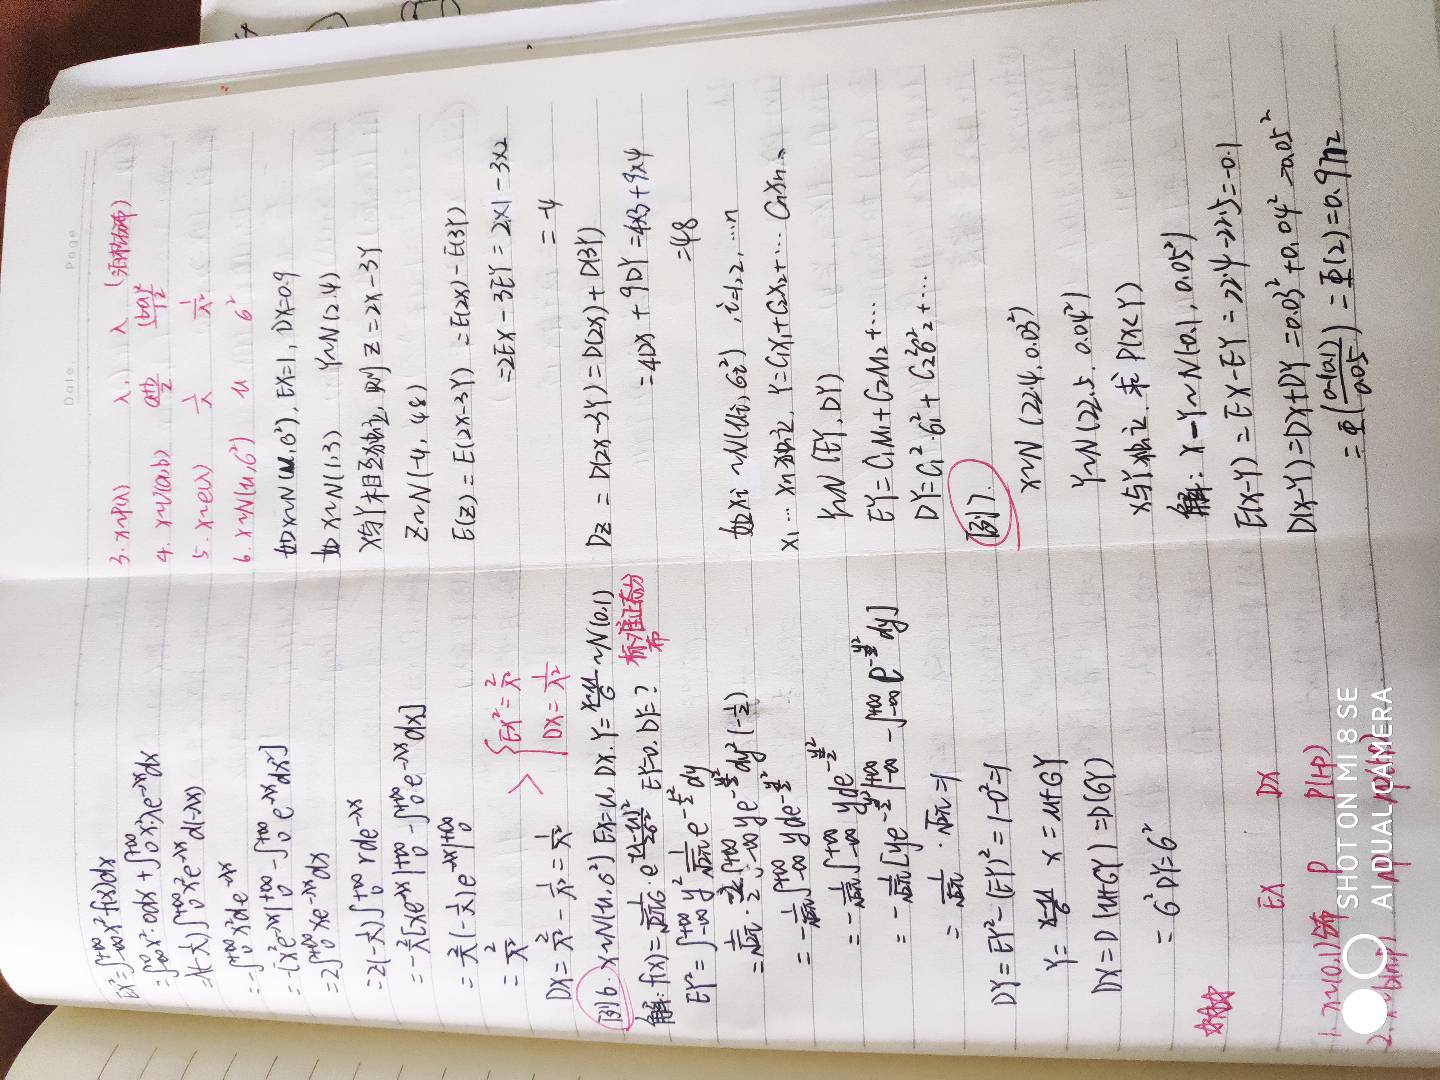 EX²=∫₋∞^{+∞} x² f(x)dx
=∫₋∞^0 x²·0dx + ∫₀^{+∞} x²·λe^{-λx}dx
=λ(-1/λ)∫₀^{+∞} x²e^{-λx} d(-λx)
=-∫₀^{+∞} x²de^{-λx}
=-[x²e^{-λx}|₀^{+∞} - ∫₀^{+∞} e^{-λx}dx²]
=2∫₀^{+∞} xe^{-λx}dx
=2(-1/λ)∫₀^{+∞} xde^{-λx}
=-2/λ[xe^{-λx}|₀^{+∞} - ∫₀^{+∞} e^{-λx}dx]
=2/λ(-1/λ)e^{-λx}|₀^{+∞}
=2/λ²
DX=2/λ² - 1/λ² = 1/λ²
> { EX²=2/λ²
DX=1/λ²
例6. X~N(μ,σ²) EX=μ, DX. Y=(x-μ)/σ ~N(0,1)
标准正态分布
解: f(x)=1/(√2π σ)·e^{-(x-μ)²/2σ²} EY=0. DY=?
EY²=∫₋∞^{+∞} y² 1/√2π e^{-y²/2}dy
=1/√2π · 2/2 ∫₋∞^{+∞} ye^{-y²/2}dy²(-1/2)
=-1/√2π ∫₋∞^{+∞} yde^{-y²/2}
=-1/√2π ∫₋∞^{+∞} yde^{-y²/2}
=-1/√2π [ye^{-y²/2}|₋∞^{+∞} - ∫₋∞^{+∞} e^{-y²/2}dy]
=1/√2π · √2π=1
DY=EY²-(EY)²=1-0²=1
Y=(x-μ)/σ x=μ+σY
DX=D(μ+σY)=D(σY)
=σ²DY=σ²
☆☆☆
EX DX
1. x~(0,1)分布 P P(1-p)
2. x~b(n,p) np np(1-p)
SHOT ON MI 8 SE
AI DUAL CAMERA
Date. Page
3. x~P(λ) λ. λ (泊松分布)
4. x~U(a,b) (a+b)/2 (b-a)²/12
5. x~e(λ) 1/λ 1/λ²
6. x~N(μ,σ²) μ σ²
如X~N(μ,σ²), EX=1, DX=0.9
如X~N(1,3) Y~N(2.4)
X与Y相互独立, 则Z=2X-3Y
Z~N(-4, 48)
E(Z)=E(2X-3Y) =E(2X)-E(3Y)
=2EX-3EY=2×1-3×2
=-4
DZ=D(2X-3Y)=D(2X)+D(3Y)
=4DX+9DY=4×3+9×4
=48
如Xi~N(μi,σi²), i=1,2,…n
X1…Xn独立, Y=C1X1+C2X2+…CnXn
Y~N(EY,DY)
EY=C1μ1+C2μ2+…
DY=C1²·σ1²+C2²σ2²+…
例7.
X~N(22.4,0.03²)
Y~N(22.5.0.04²)
X与Y独立. 求P(X<Y)
解: X-Y~N(-0.1,0.05²)
E(X-Y)=EX-EY=22.4-22.5=-0.1
D(X-Y)=DX+DY=0.03²+0.04²=0.05²
=Φ((0-(-0.1))/0.05)=Φ(2)=0.9772